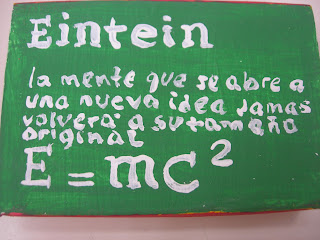 Eintein
la mente que se abre a
una nueva idea Jamas
volvera a su tamaño
original
E = mc²